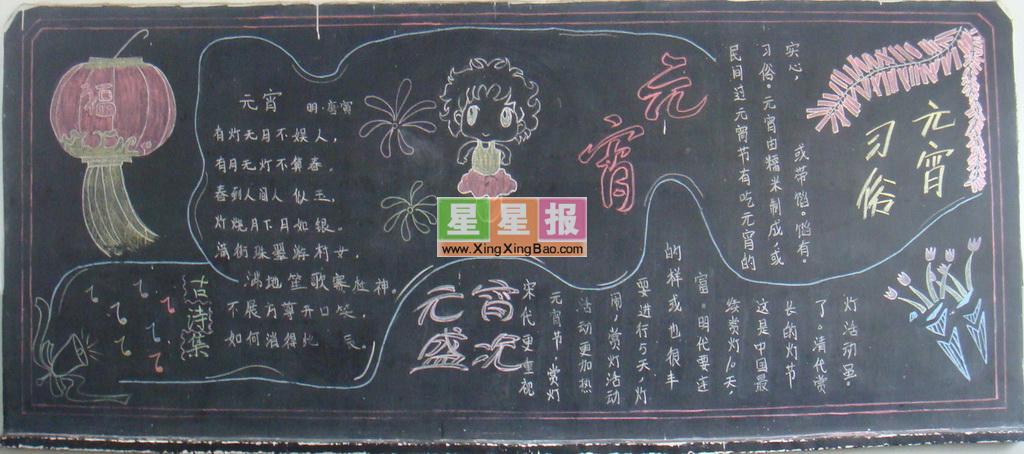 福
元宵
有灯无月不娱人,
有月无灯不算春。
春到人间人似玉,
灯烧月下月如银。
满街珠翠游村女,
满地笙歌赛社神。
不展芳尊开口笑,
如何消得此 辰。
古诗集
元宵
星星报
www.XingXingBao.com
元宵
习俗
民间过元宵节有吃元宵的
习俗。元宵由糯米制成,或
实心, 或带馅。馅有
元宵
盛况
宋代更重视
元宵节,赏灯
活动更加热
闹,赏灯活动
要进行5天,灯
的样式也很丰
富。明代要连
续赏灯10天,
这是中国最
长的灯节
了。清代赏
灯活动虽